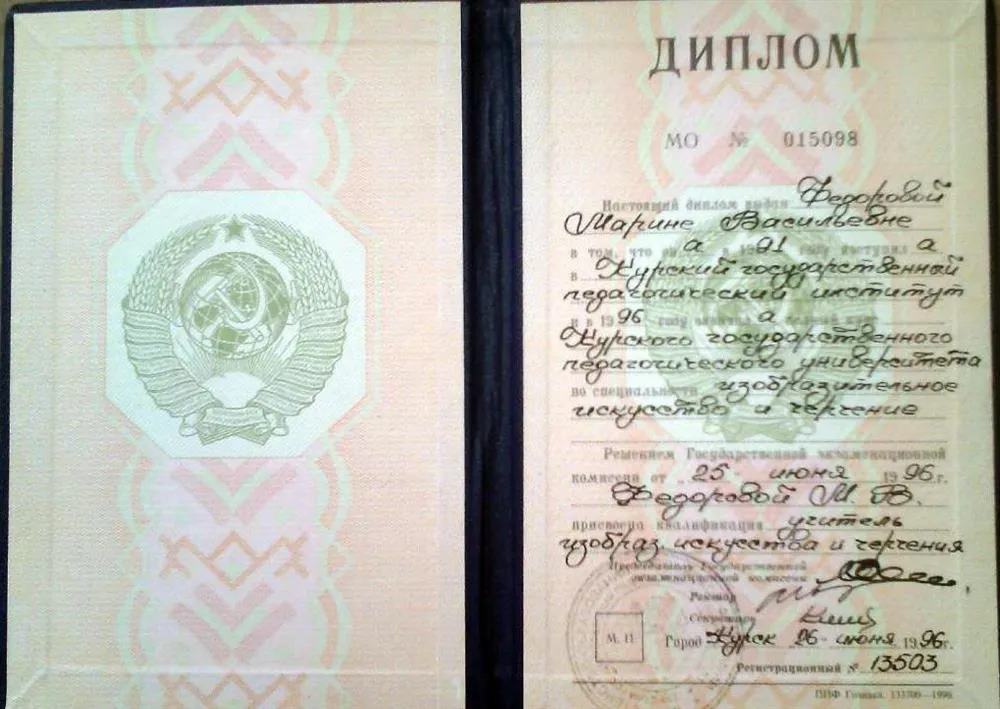 ДИПЛОМ
МО № 015098
Настоящий диплом выдан Федоровой
Марине Васильевне
в том, что он а в 1991 году поступил а
в Курский государственный
педагогический институт
и в 1996 году окончил а полный курс
Курского государственного
педагогического университета
по специальности изобразительное
искусство и черчение
Решением Государственной экзаменационной
комиссии от „25" июня 1996 г.
Федоровой М. В.
присвоена квалификация учитель
изобраз. искусства и черчения
Председатель Государственной
экзаменационной комиссии
Ректор
Секретарь
М. П.
Город Курск 26 июня 1996 г.
Регистрационный № 13503
ППФ Гознака. 1996